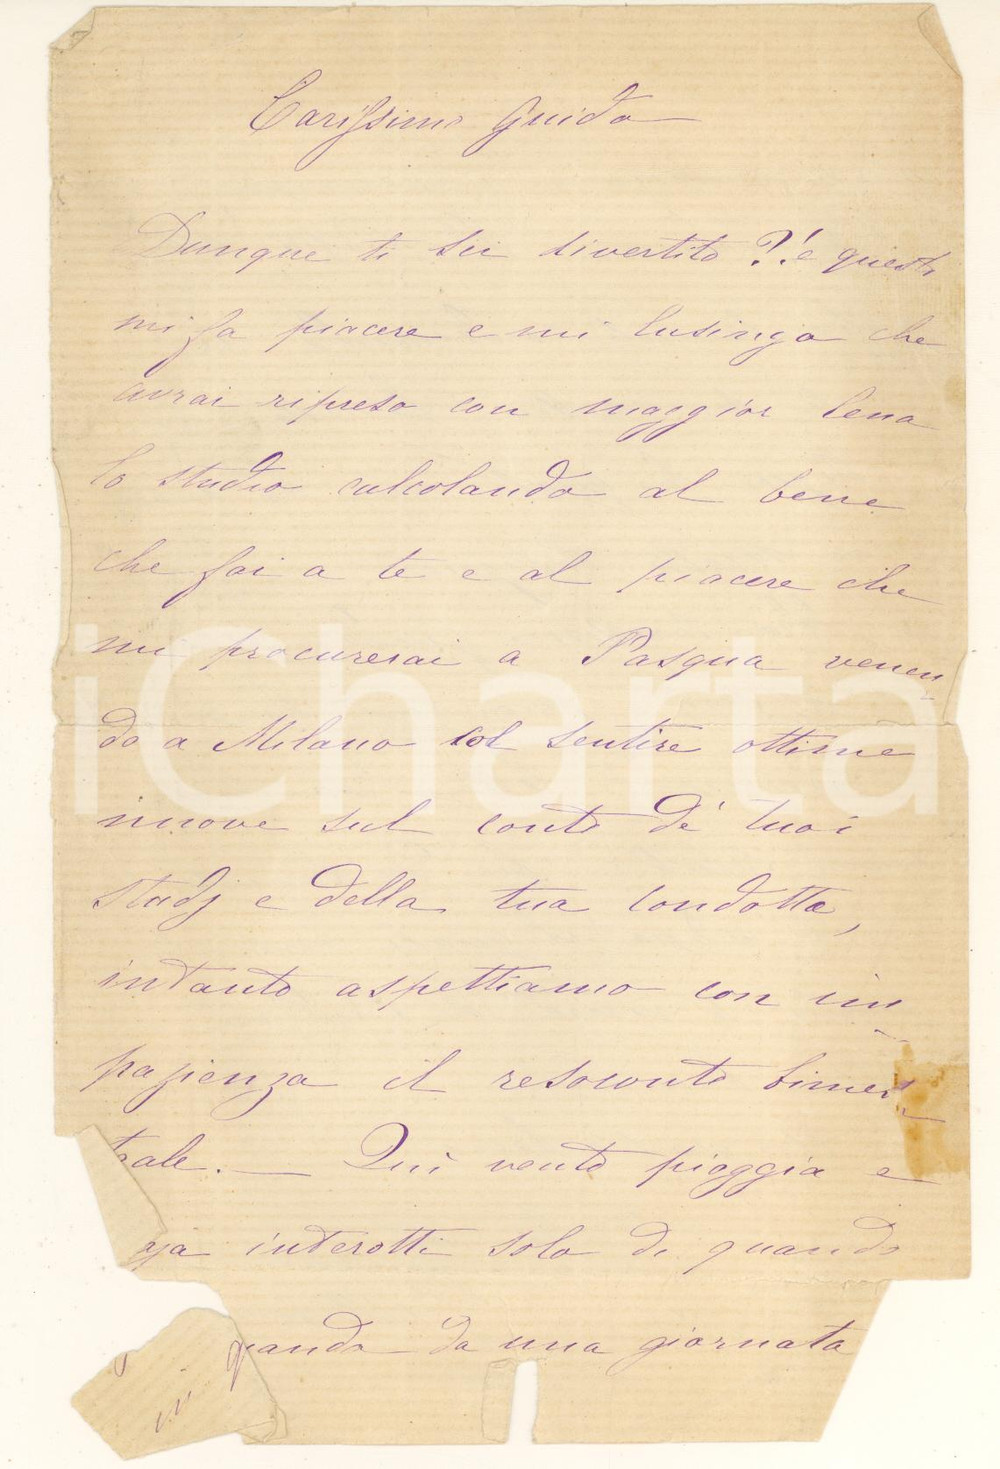 Carissimo Guido
Dunque ti sei divertito ?! e questo
mi fa piacere e mi lusingo che
avrai ripreso con maggior lena
lo studio calcolando al bene
che fai a te e al piacere che
mi procurerai a Pasqua venen
do a Milano col sentire ottime
nuove sul conto de' tuoi
studj e della tua condotta,
intanto aspettiamo con im
pazienza il resoconto bimes
trale. — Qui vento pioggia e
interotti solo di quando
quando da una giornata
iCharta